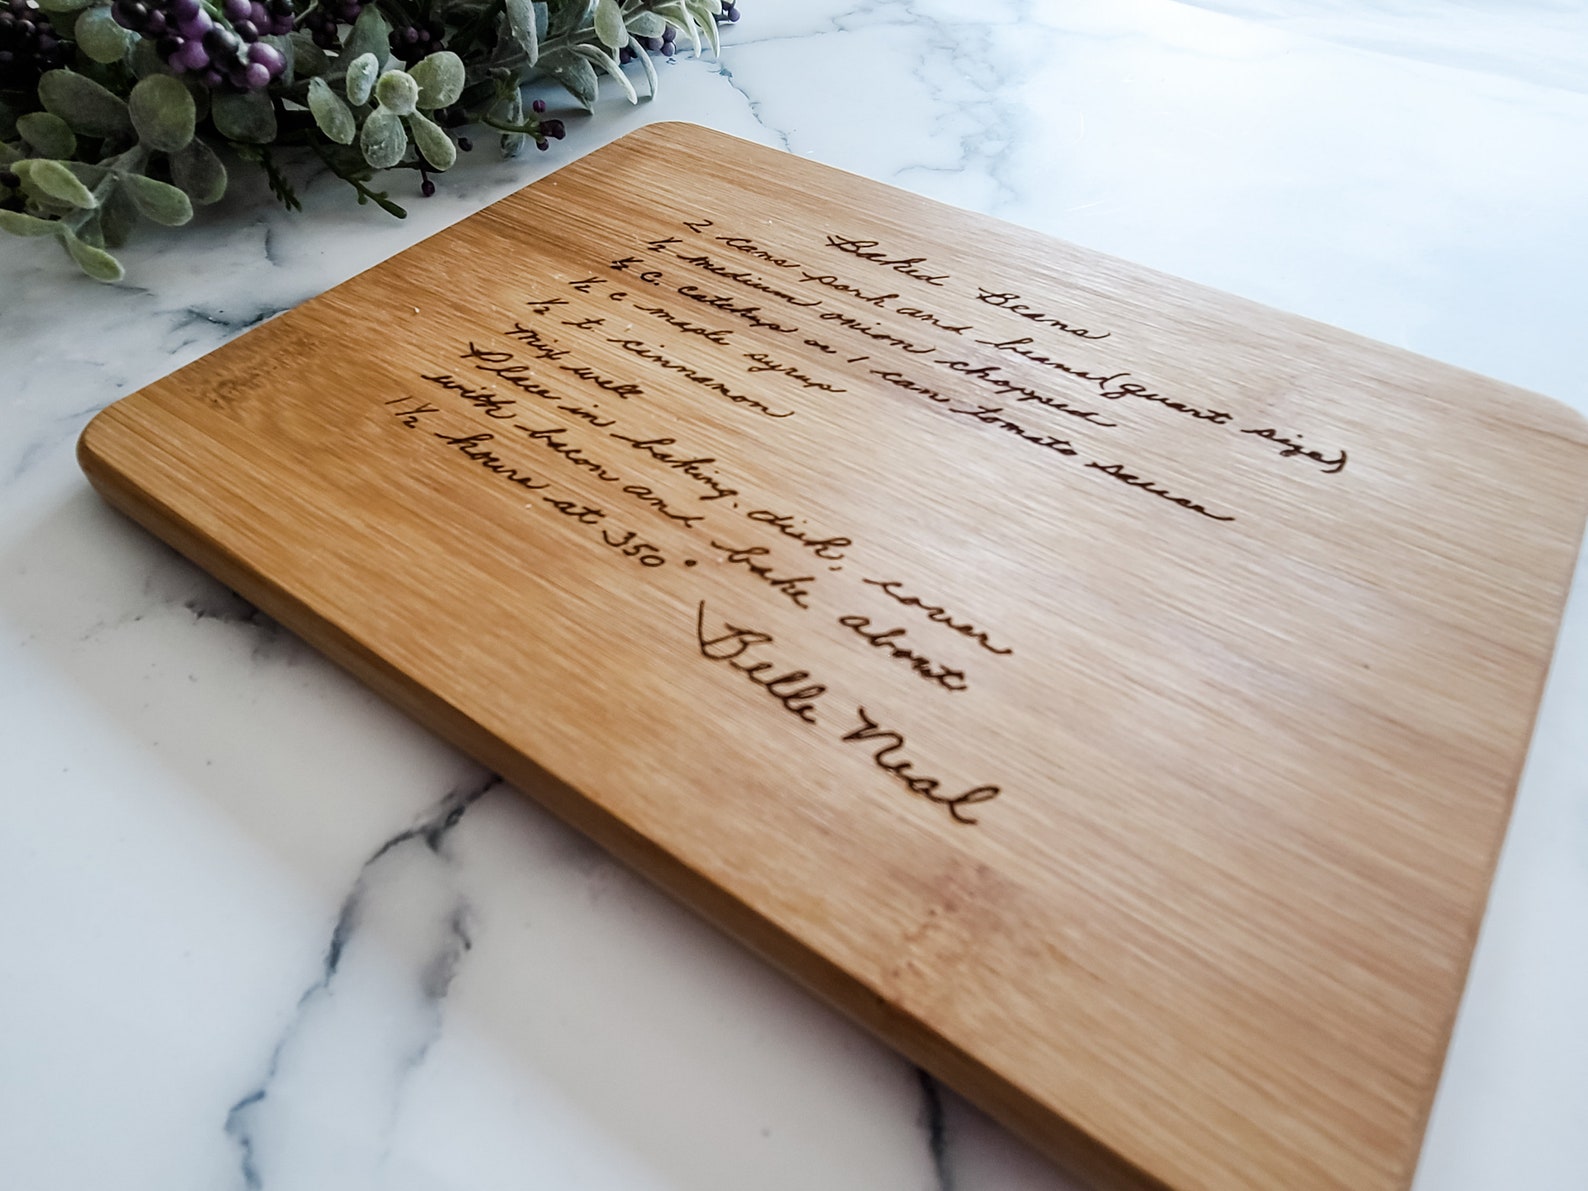 Baked Beans
2 cans pork and beans (quart size)
1/2 medium onion chopped
1/2 c. catchup or 1 can tomato sauce
1/2 c maple syrup
1/2 t. cinnamon
Mix well
Place in baking dish, cover
with bacon and bake about
1 1/2 hours at 350°
Belle Neal